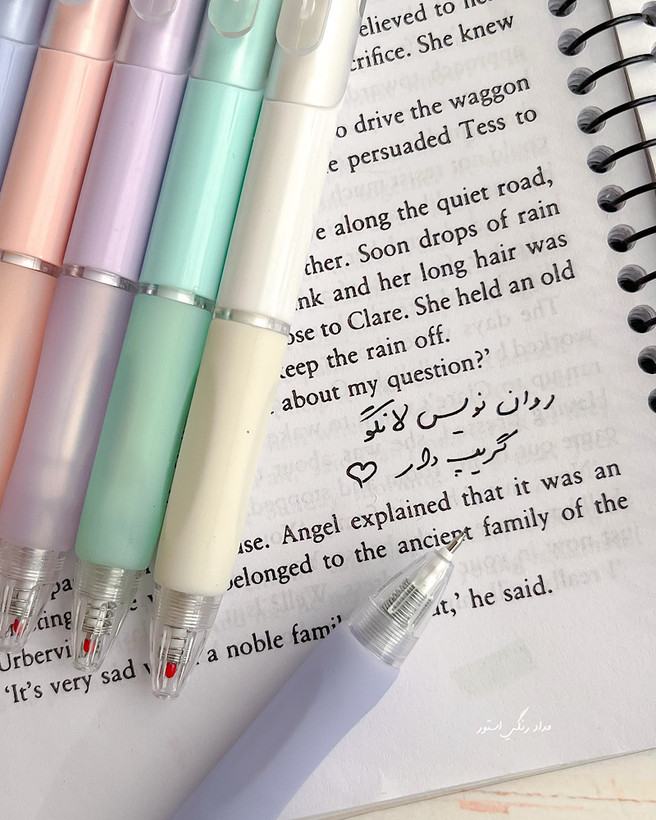 elieved to
crifice. She knew
o drive the waggon
e persuaded Tess to
e along the quiet road,
ther. Soon drops of rain
nk and her long hair was
ose to Clare. She held an old
eep the rain off.
about my question?’
روان نویس لانگو
گریپ دار ♡
use. Angel explained that it was an
belonged to the ancient family of the
Urbervi a noble fami ut,’ he said.
‘It’s very sad
مداد رنگی استور